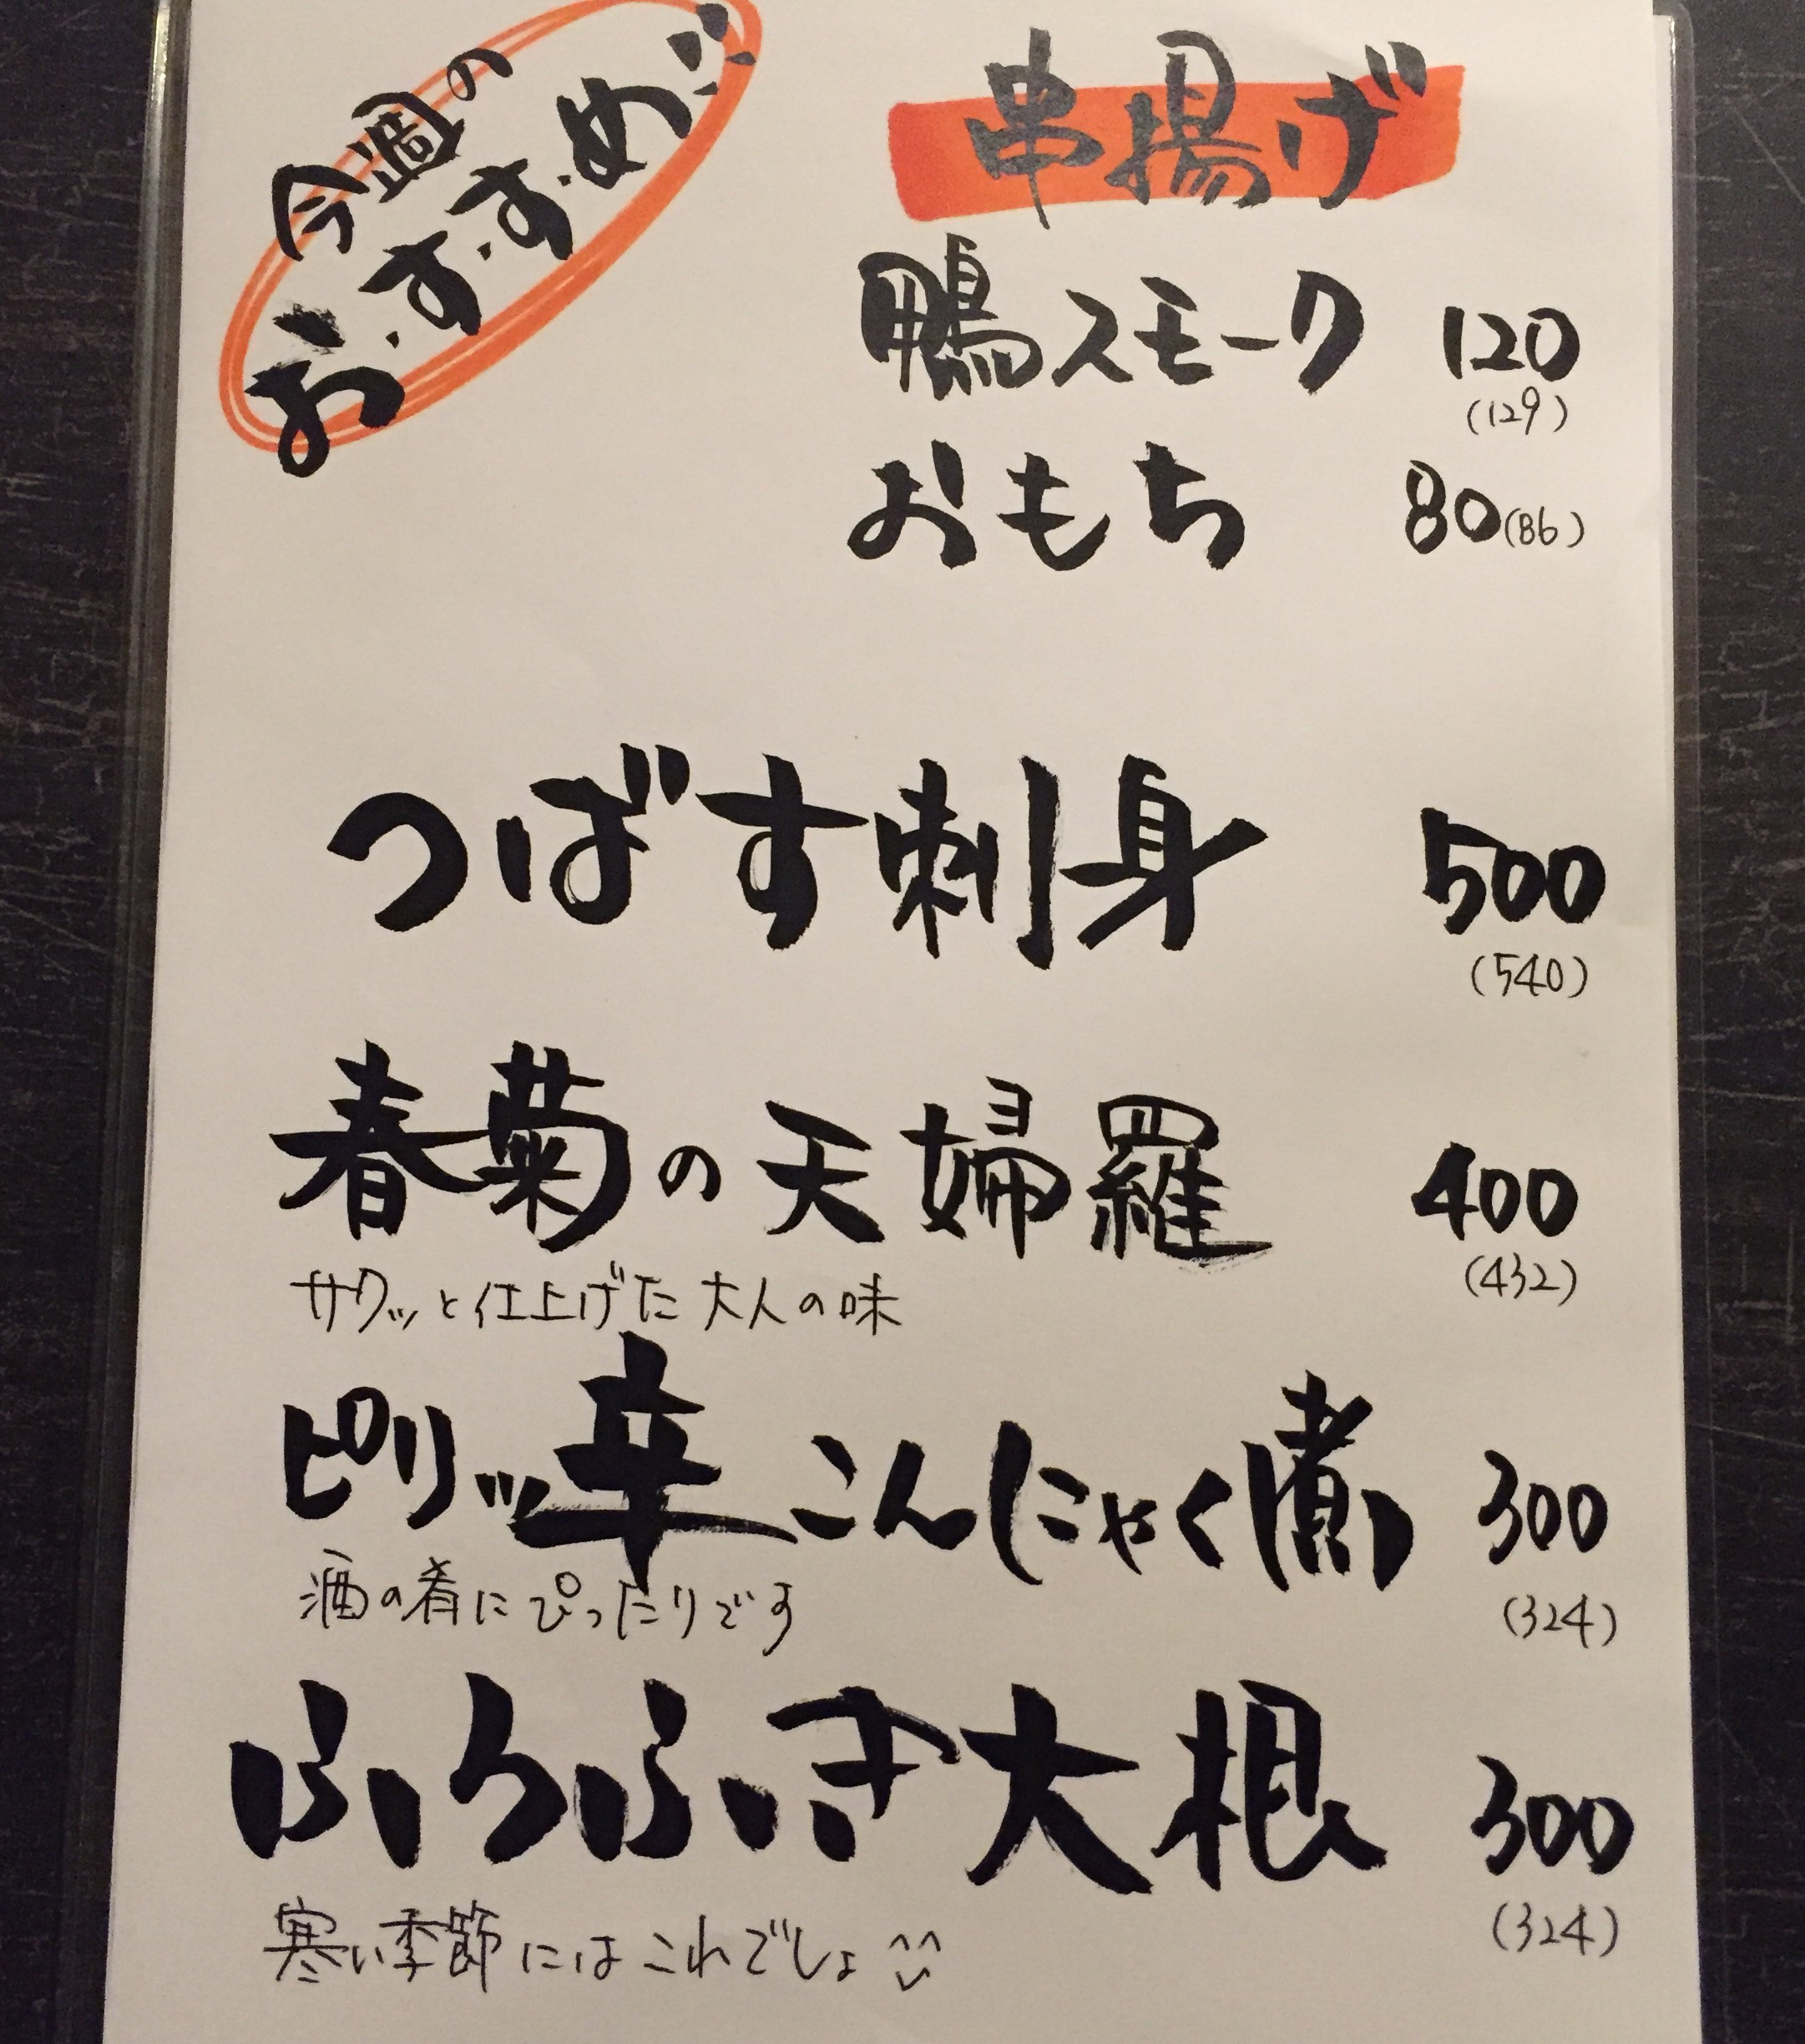 今週の
お・す・す・め!!
串揚げ
鴨スモーク 120
(129)
おもち 80(86)
つばす刺身 500
(540)
春菊の天婦羅 400
(432)
サクッと仕上げた大人の味
ピリッ辛こんにゃく煮 300
(324)
酒の肴にぴったりです
ふろふき大根 300
(324)
寒い季節にはこれでしょ ^^